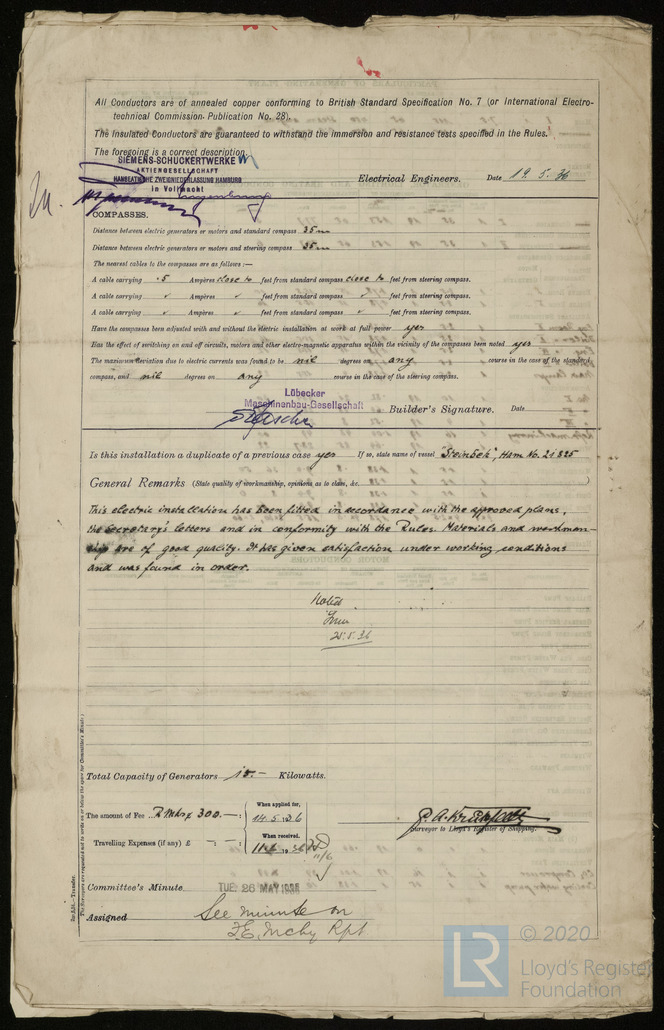 All Conductors are of annealed copper conforming to British Standard Specification No. 7 (or International Electro-
technical Commission Publication No. 28).
The Insulated Conductors are guaranteed to withstand the immersion and resistance tests specified in the Rules.
The foregoing is a correct description.
SIEMENS-SCHUCKERTWERKE
AKTIENGESELLSCHAFT
HANSEATISCHE ZWEIGNIEDERLASSUNG HAMBURG
in Vollmacht
Electrical Engineers. Date 19. 5. 36
COMPASSES.
Distance between electric generators or motors and standard compass 35m
Distance between electric generators or motors and steering compass 35m
The nearest cables to the compasses are as follows:—
A cable carrying .5 Ampères close to feet from standard compass close to feet from steering compass.
A cable carrying ✓ Ampères ✓ feet from standard compass ✓ feet from steering compass.
A cable carrying ✓ Ampères ✓ feet from standard compass ✓ feet from steering compass.
Have the compasses been adjusted with and without the electric installation at work at full power yes
Has the effect of switching on and off circuits, motors and other electro-magnetic apparatus within the vicinity of the compasses been noted yes
The maximum deviation due to electric currents was found to be nil degrees on any course in the case of the standard
compass, and nil degrees on any course in the case of the steering compass.
Lübecker
Maschinenbau-Gesellschaft
Builder's Signature. Date
Is this installation a duplicate of a previous case yes If so, state name of vessel "Steinbek" Ham No. 21825
General Remarks (State quality of workmanship, opinions as to class, &c.
This electric installation has been fitted in accordance with the aproved plans,
the Secretary's letters and in conformity with the Rules. Materials and workman-
ship are of good quality. It has given satisfaction under working conditions
and was found in order.
Noted
25.5.36
Total Capacity of Generators 15.— Kilowatts.
The amount of Fee RMks 300.— : When applied for, 14.5.36
Travelling Expenses (if any) £ : — : When received, 11.6.1936
11/6
Surveyor to Lloyd's Register of Shipping.
Committee's Minute TUE 26 MAY 1936
Assigned See minute on
F.E. Mchy Rpt
The Surveyors are requested not to write on or below the space for Committee's Minute.
© 2020
LR Lloyd's Register
Foundation